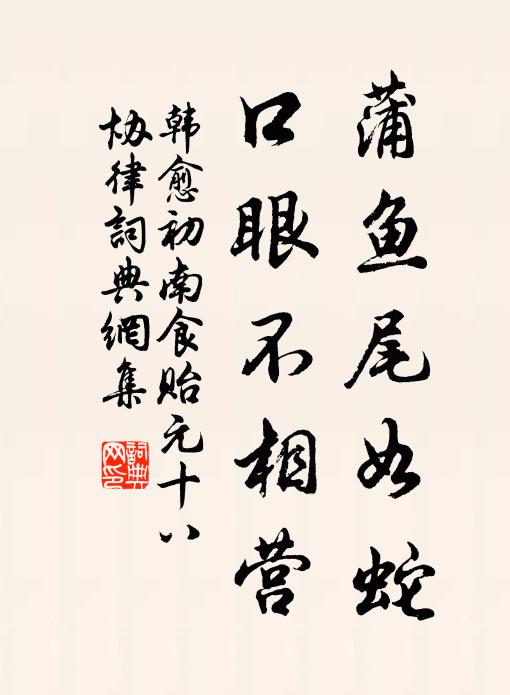 蒲鱼尾如蛇
口眼不相营
韩愈初南食贻元十八
协律詞典網集
詞典
网印